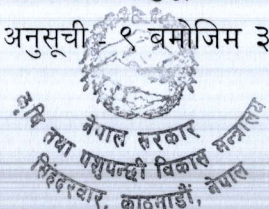 अनुसूची - ९ बमोजिम ३
नेपाल सरकार
कृषि तथा पशुपन्छी विकास मन्त्रालय
सिंहदरवार, काठमाडौं, नेपाल